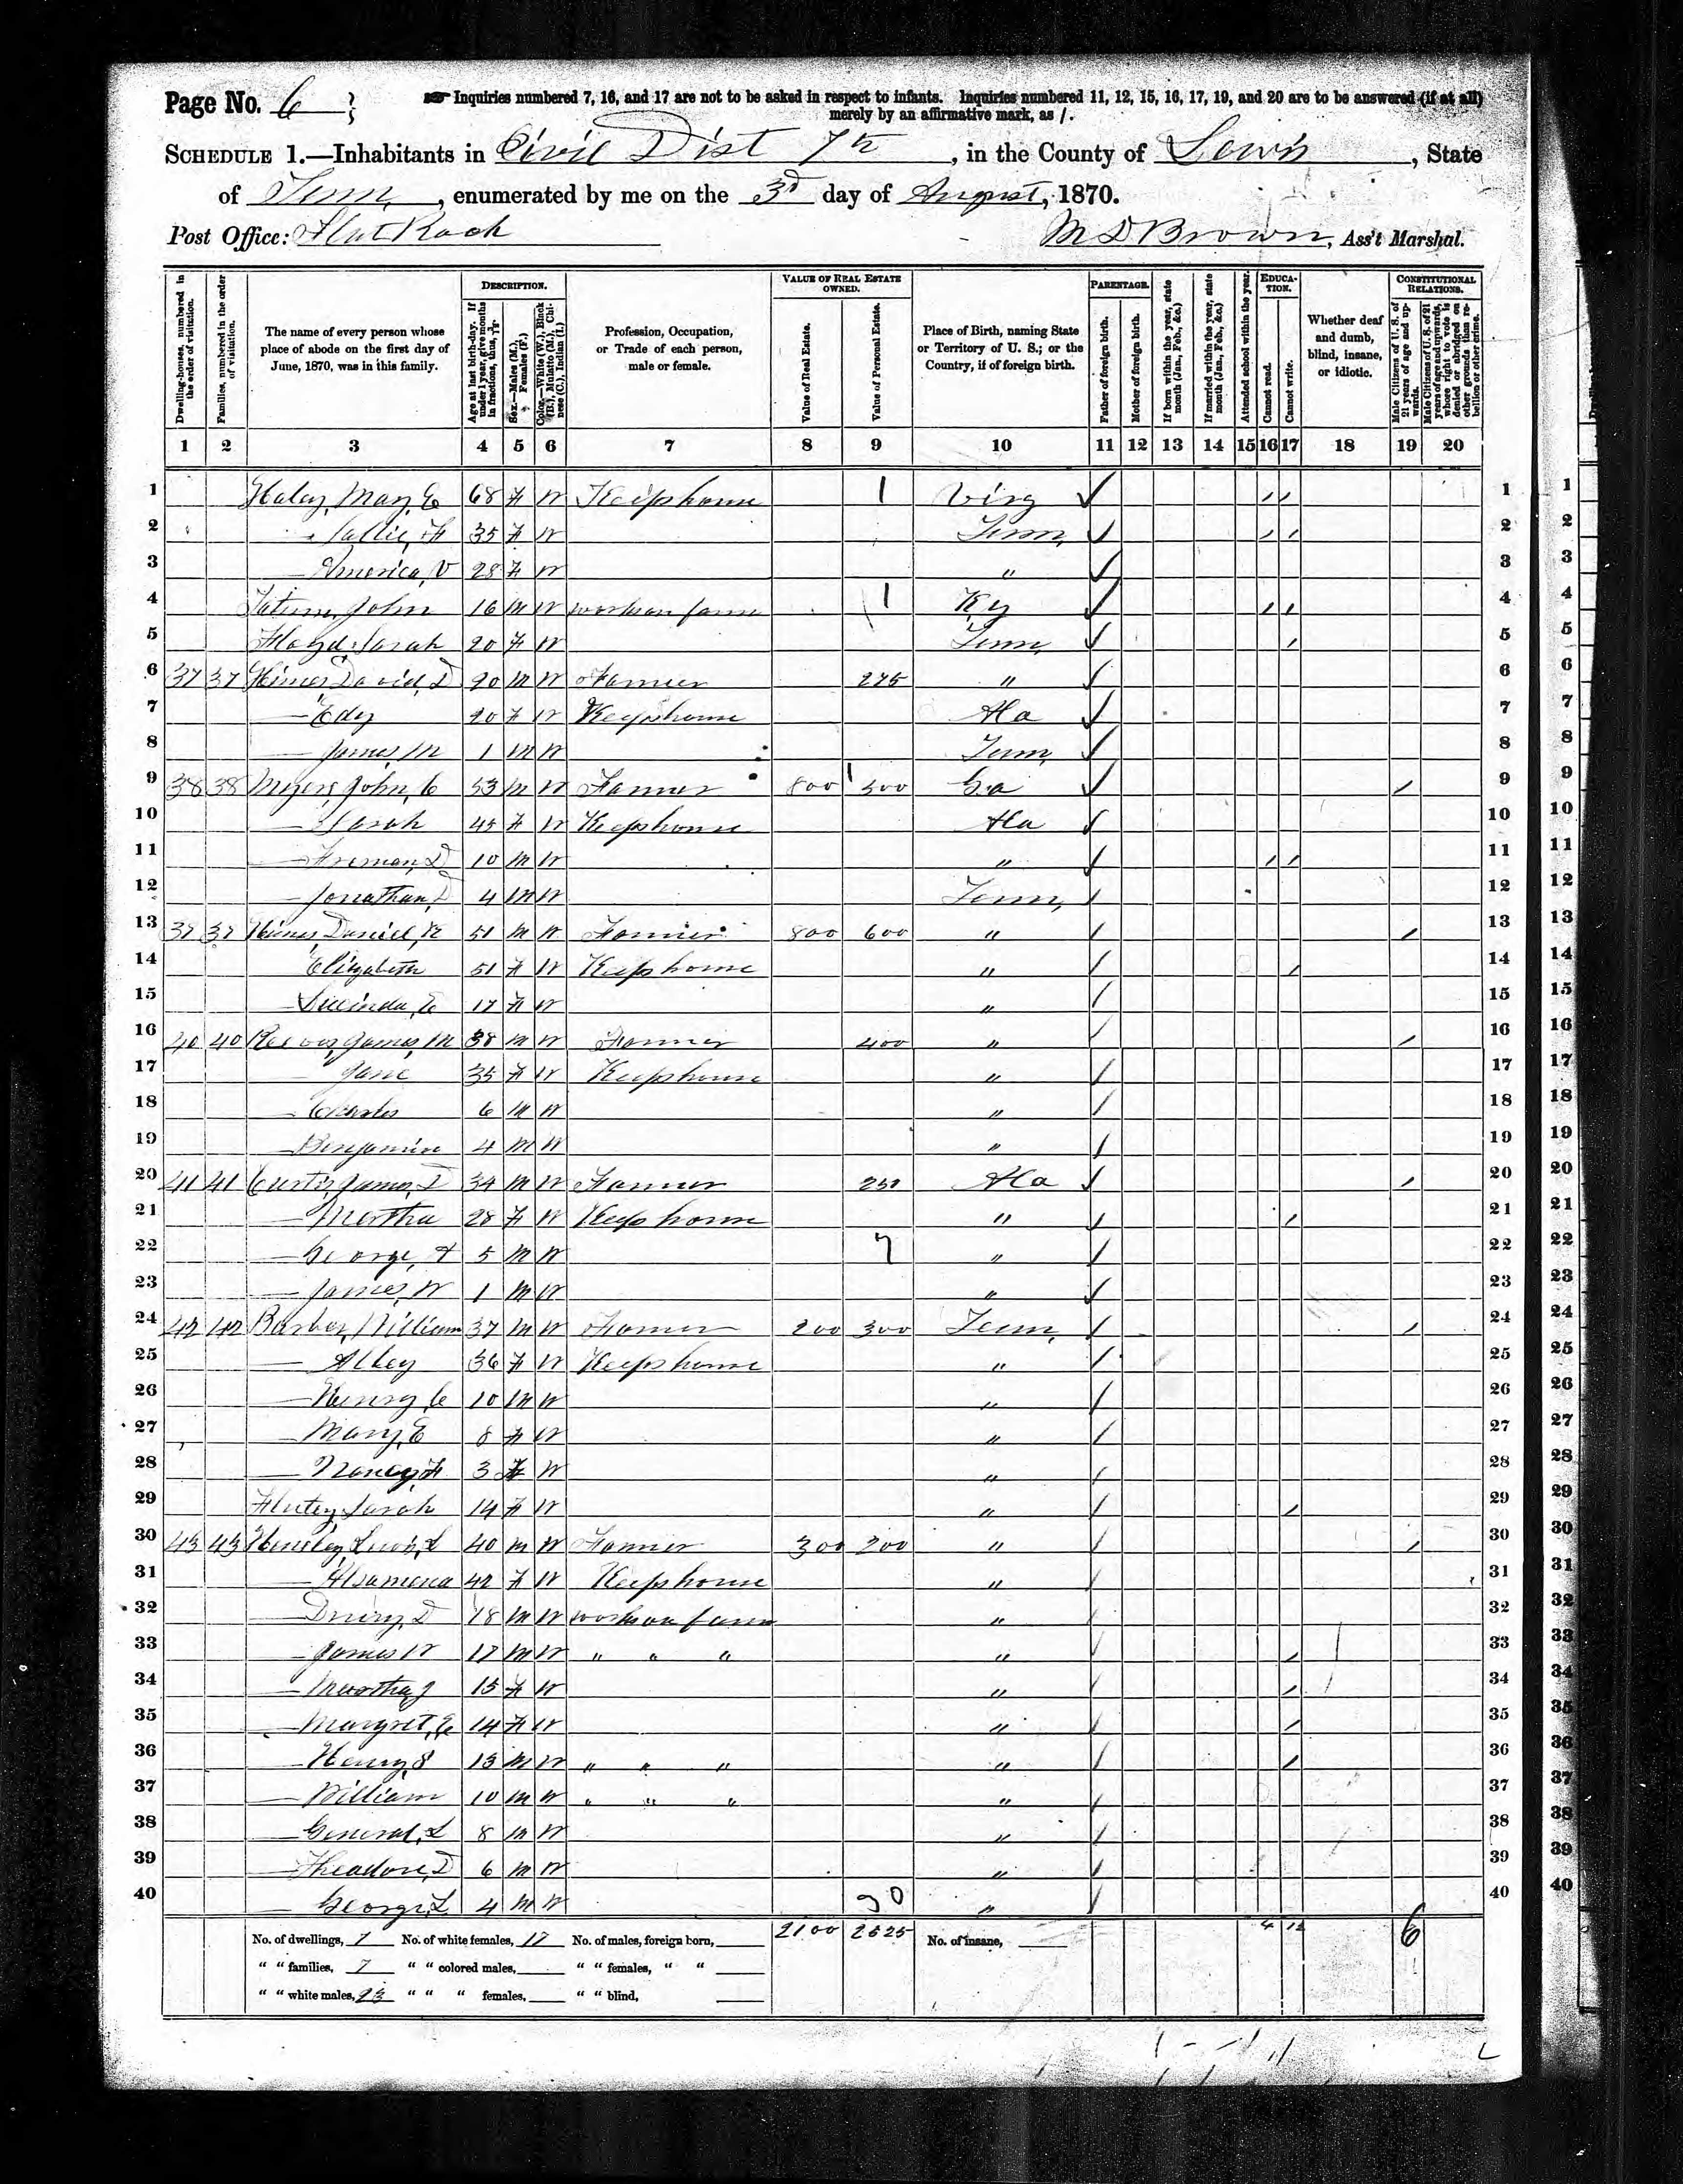 Page No. 6
Inquiries numbered 7, 16, and 17 are not to be asked in respect to infants. Inquiries numbered 11, 12, 15, 16, 17, 19, and 20 are to be answered (if at all)
merely by an affirmative mark, as /.
SCHEDULE 1.—Inhabitants in Civil Dist 7th, in the County of Lewis, State
of Tenn, enumerated by me on the 3d day of August, 1870.
Post Office: Flat Rock
M D Brown, Ass't Marshal.
Dwelling-houses, numbered in the order of visitation.
Families, numbered in the order of visitation.
The name of every person whose place of abode on the first day of June, 1870, was in this family.
DESCRIPTION.
Age at last birth-day. If under 1 year, give months in fractions, thus, 3/12.
Sex.—Males (M.), Females (F.)
Color.—White (W.), Black (B.), Mulatto (M.), Chinese (C.), Indian (I.)
Profession, Occupation, or Trade of each person, male or female.
VALUE OF REAL ESTATE OWNED.
Value of Real Estate.
Value of Personal Estate.
Place of Birth, naming State or Territory of U. S.; or the Country, if of foreign birth.
PARENTAGE.
Father of foreign birth.
Mother of foreign birth.
If born within the year, state month (Jan., Feb., &c.)
If married within the year, state month (Jan., Feb., &c.)
Attended school within the year.
EDUCATION.
Cannot read.
Cannot write.
Whether deaf and dumb, blind, insane, or idiotic.
CONSTITUTIONAL RELATIONS.
Male Citizens of U. S. of 21 years of age and upwards.
Male Citizens of U. S. of 21 years of age and upwards, whose right to vote is denied or abridged on other grounds than rebellion or other crime.
1 2 3 4 5 6 7 8 9 10 11 12 13 14 15 16 17 18 19 20
1 Haley, Mary, E 68 F W Keeps house 1 Virg / / 1
2 Sallie, F 35 F W Tenn / / 2
3 America, V 28 F W " 3
4 Tatum, John 16 M W works on farm 1 Ky / / 4
5 Floyd, Sarah 20 F W Tenn / 5
6 37 37 Hines, David, D 20 M W Farmer 275 " 6
7 Edy 20 F W Keeps house Ala 7
8 James, M 1 M W Tenn 8
9 38 38 Myers, John, C 53 M W Farmer 800 500 Ga / 9
10 Sarah 45 F W Keeps house Ala 10
11 Freman, D 10 M W " / / 11
12 Jonathan, D 4 M W Tenn 12
13 Hines, Daniel, R 51 M W Farmer 800 600 " / 13
14 Elizabeth 51 F W Keeps house " / 14
15 Lucinda, E 17 F W " 15
16 40 40 Reeves, James, M 38 M W Farmer 400 " / 16
17 Jane 35 F W Keeps house " 17
18 Charles 6 M W " 18
19 Benjamin 4 M W " 19
20 41 41 Curtis, James, D 34 M W Farmer 250 Ala / 20
21 Martha 28 F W Keeps house " / 21
22 George, 5 M W 7 " 22
23 James, W 1 M W " 23
24 42 42 Barber, William 37 M W Farmer 200 300 Tenn / 24
25 36 F W Keeps house " 25
26 Henry C 10 M W " 26
27 Mary, E 8 F W " 27
28 Nancy, F 3 F W " 28
29 Sarah 14 F W " / 29
30 43 43 Hensley, Lewis, L 40 M W Farmer 300 200 " / 30
31 42 F W Keeps house " 31
32 Drury, D 18 M W works on farm " 32
33 James W 17 M W " " " " / 33
34 Martha J 15 F W " / 34
35 Margret, E 14 F W " / 35
36 Henry, S 13 M W " " " " / 36
37 William 10 M W " " " " 37
38 General, L 8 M W " 38
39 Theadore, D 6 M W " 39
40 George, L 4 M W " 40
No. of dwellings, 7 No. of white females, 17 No. of males, foreign born, 2100 2525 No. of insane, 4 12 6
" " families, 7 " " colored males, " " females, " "
" " white males, 23 " " " females, " " blind,